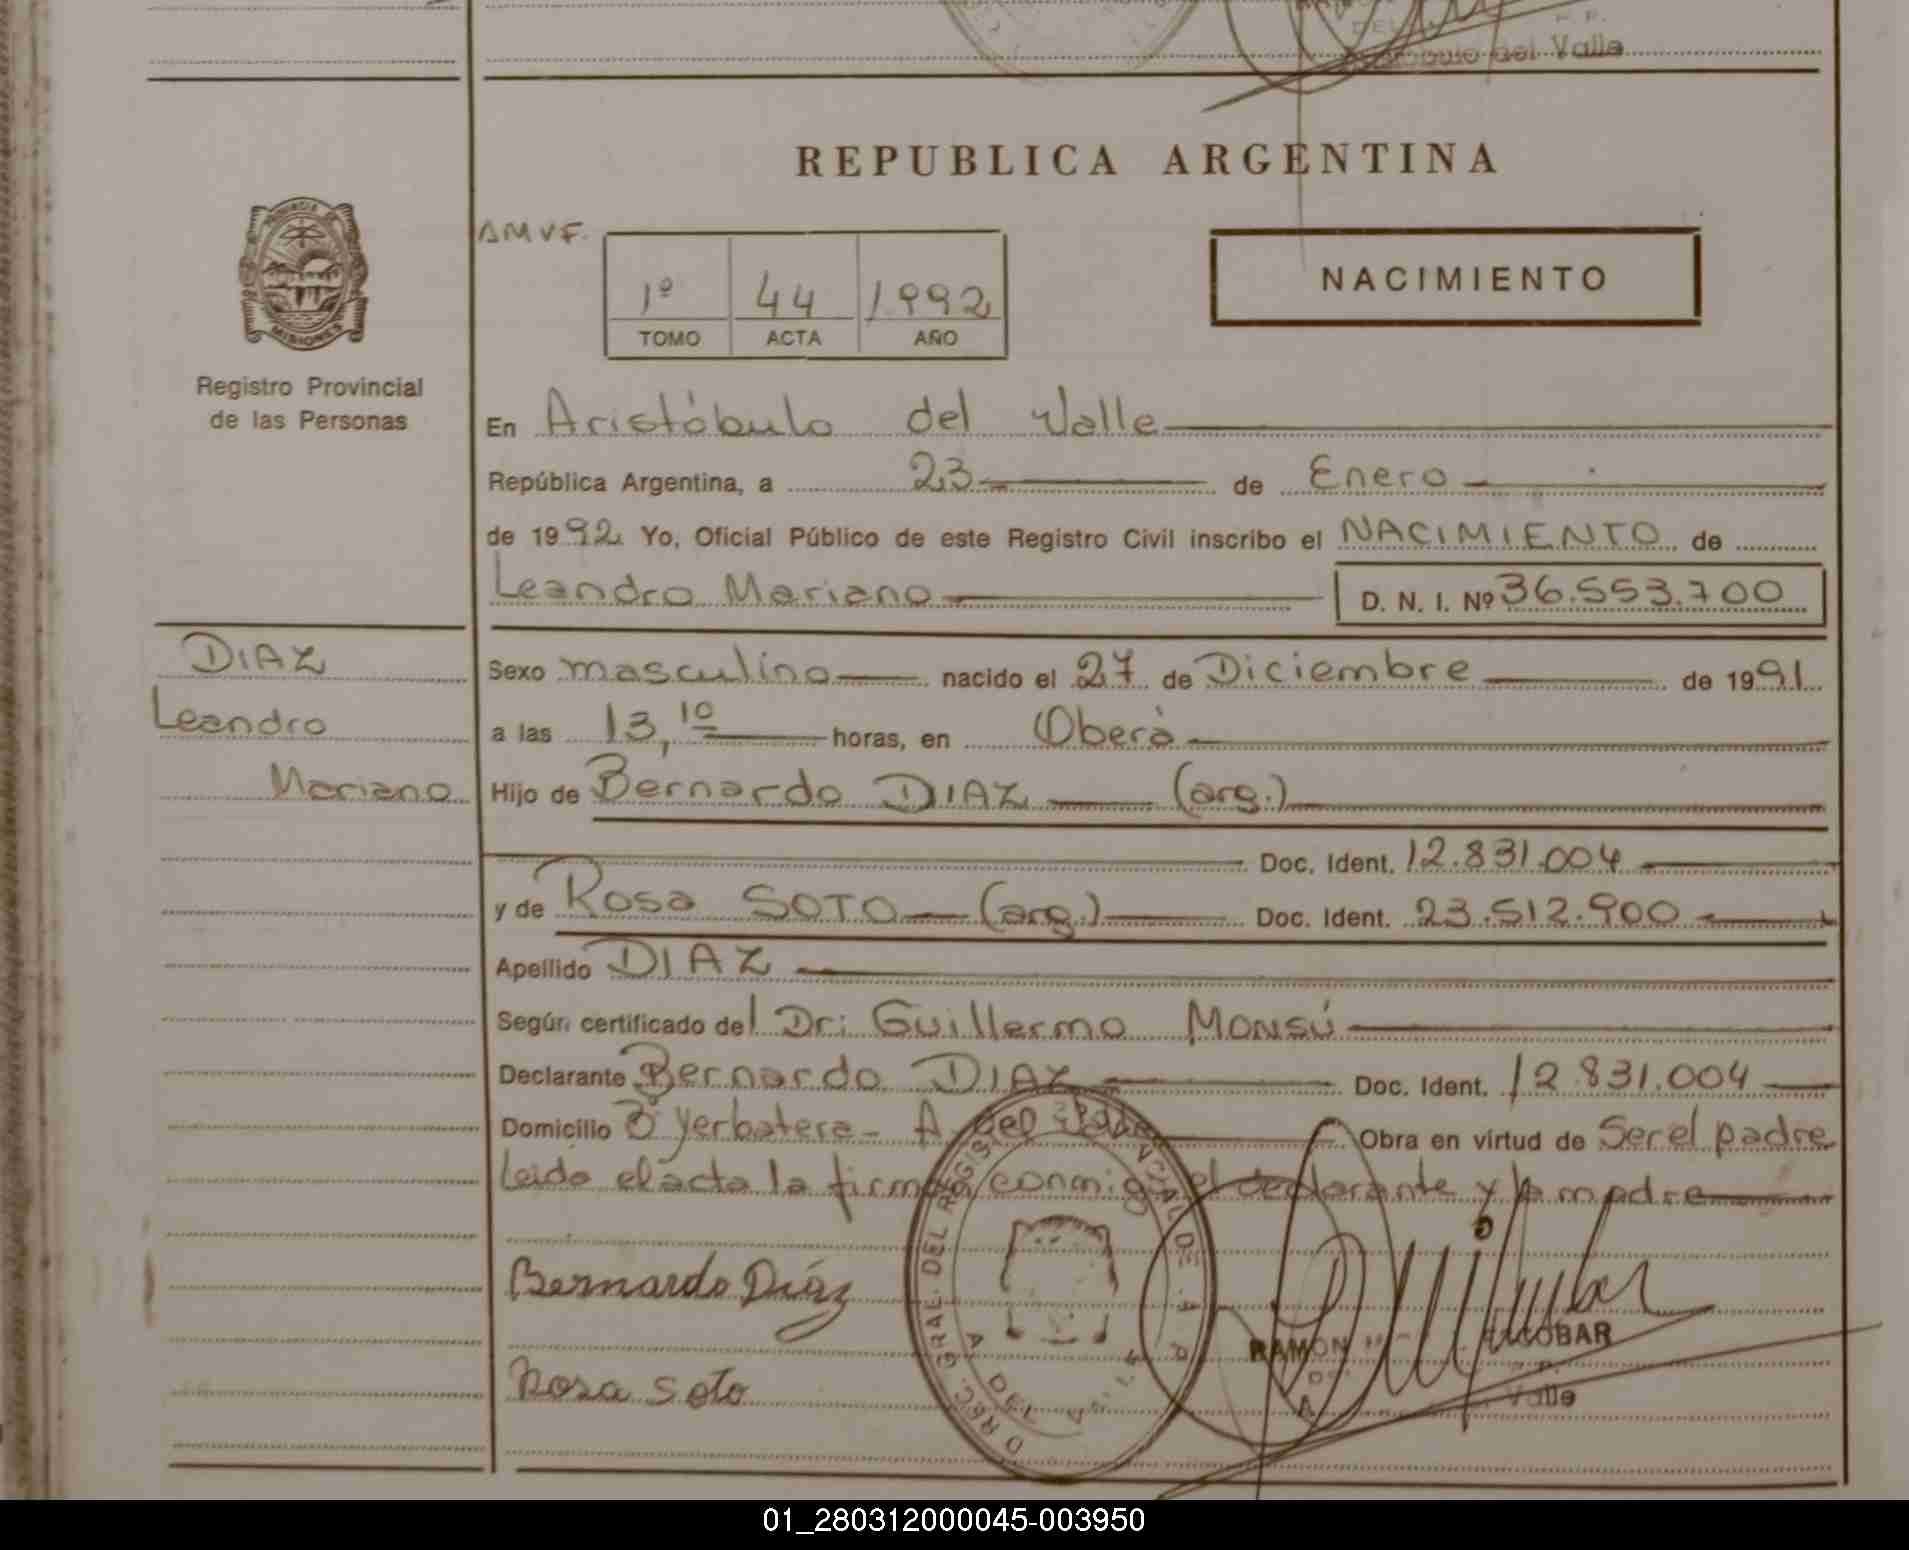 Aristóbulo del Valle
REPUBLICA ARGENTINA
PROVINCIA DE
MISIONES
Registro Provincial
de las Personas
AMVF.
1º 44 1992
TOMO ACTA AÑO
NACIMIENTO
En Aristóbulo del Valle
República Argentina, a 23 de Enero
de 1992 Yo, Oficial Público de este Registro Civil inscribo el NACIMIENTO de
Leandro Mariano D. N. I. Nº 36.553.700
DIAZ
Leandro
Mariano
Sexo masculino nacido el 27 de Diciembre de 1991
a las 13,10 horas, en Oberà
Hijo de Bernardo DIAZ (arg.)
Doc. Ident. 12.831.004
y de Rosa SOTO (arg.) Doc. Ident. 23.512.900
Apellido DIAZ
Según certificado del Dr: Guillermo MONSÚ
Declarante Bernardo DIAZ Doc. Ident. 12.831.004
Domicilio Bº Yerbatera - A. del Valle Obra en virtud de Ser el padre
Leido el acta la firman conmigo el declarante y la madre
Bernardo Díaz
Rosa Soto
DIREC. GRAL. DEL REGIS
RAMON ESCOBAR
Valle
01_280312000045-003950